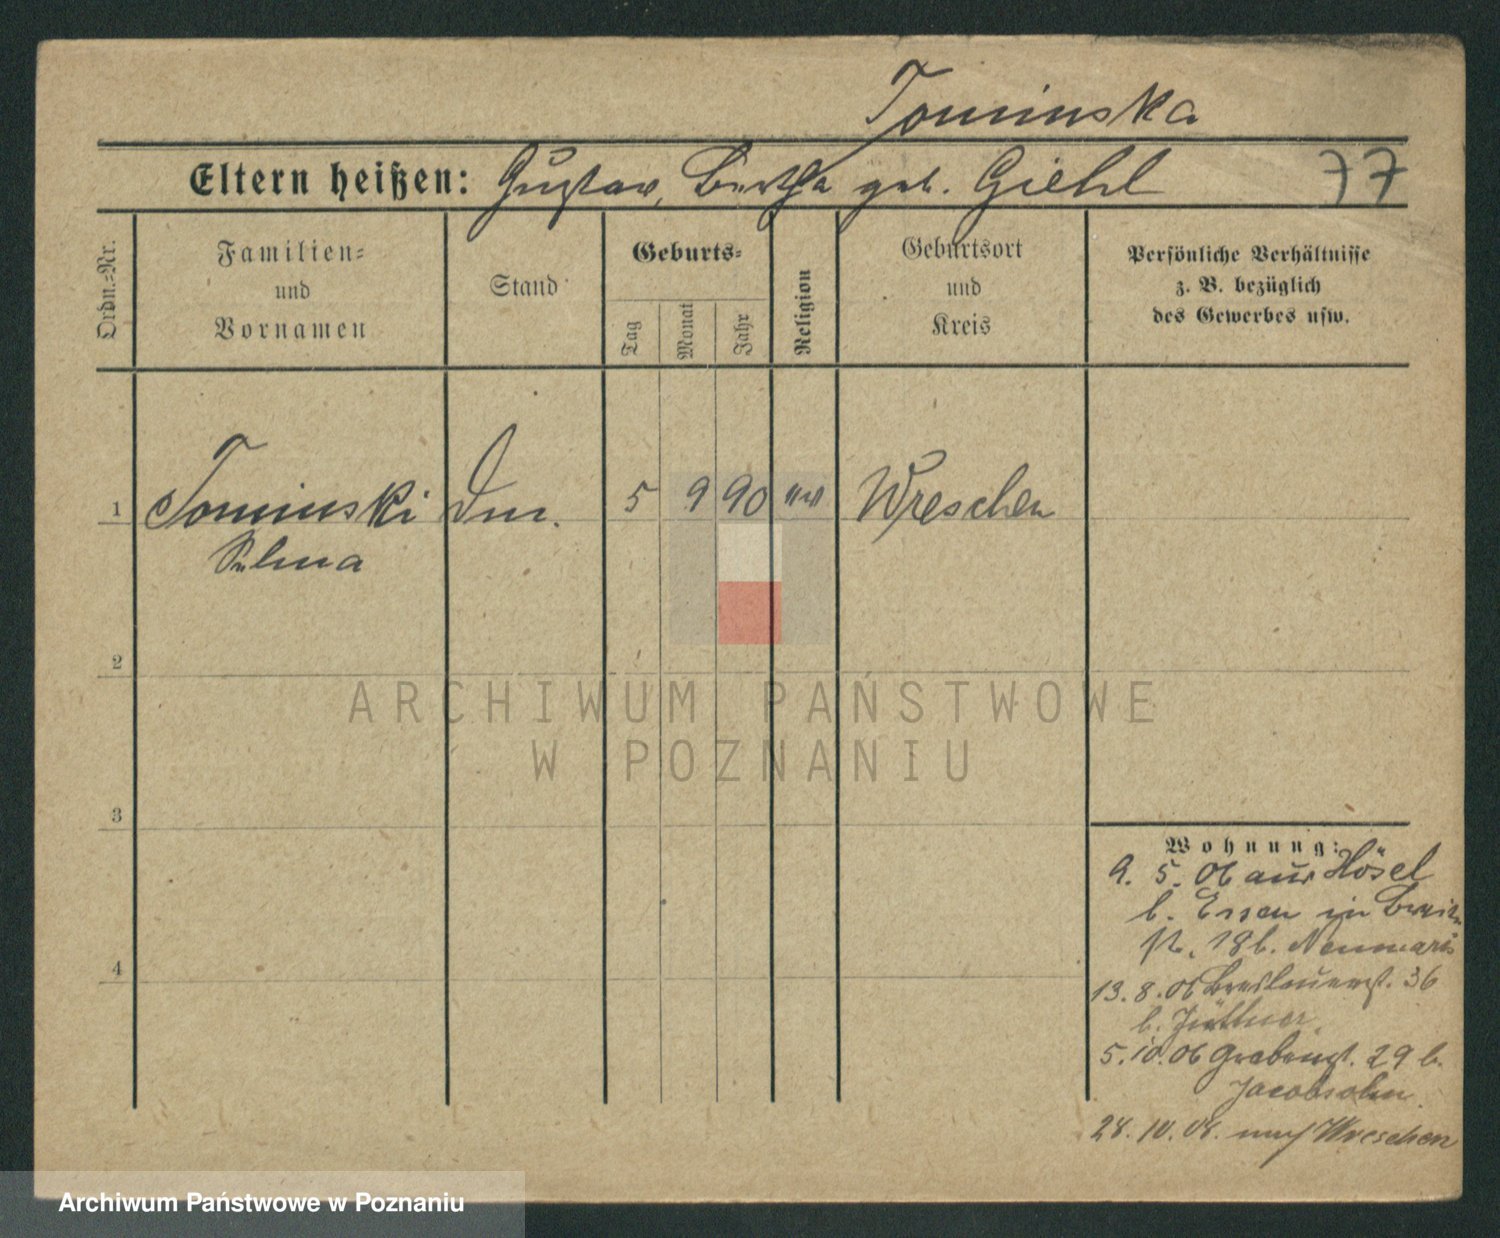 Tominska
Eltern heißen: Gustav, Bertha geb. Giehl
77
Ordn.-Nr.
Familien-
und
Vornamen
Stand
Geburts-
Tag
Monat
Jahr
Religion
Geburtsort
und
Kreis
Persönliche Verhältnisse
z. B. bezüglich
des Gewerbes usw.
1 Tominski 5 9 90 Wreschen
Selma
2
3
4
Wohnung:
9. 5. 06 aus Hösel
b. Essen in
18 b.
13. 8. 06 Breslauerst. 36
b. Jüttner
5. 10. 06 Grabenst. 29 b.
Jacobsohn
28. 10. 06. nach Wreschen
ARCHIWUM PAŃSTWOWE
W POZNANIU
Archiwum Państwowe w Poznaniu